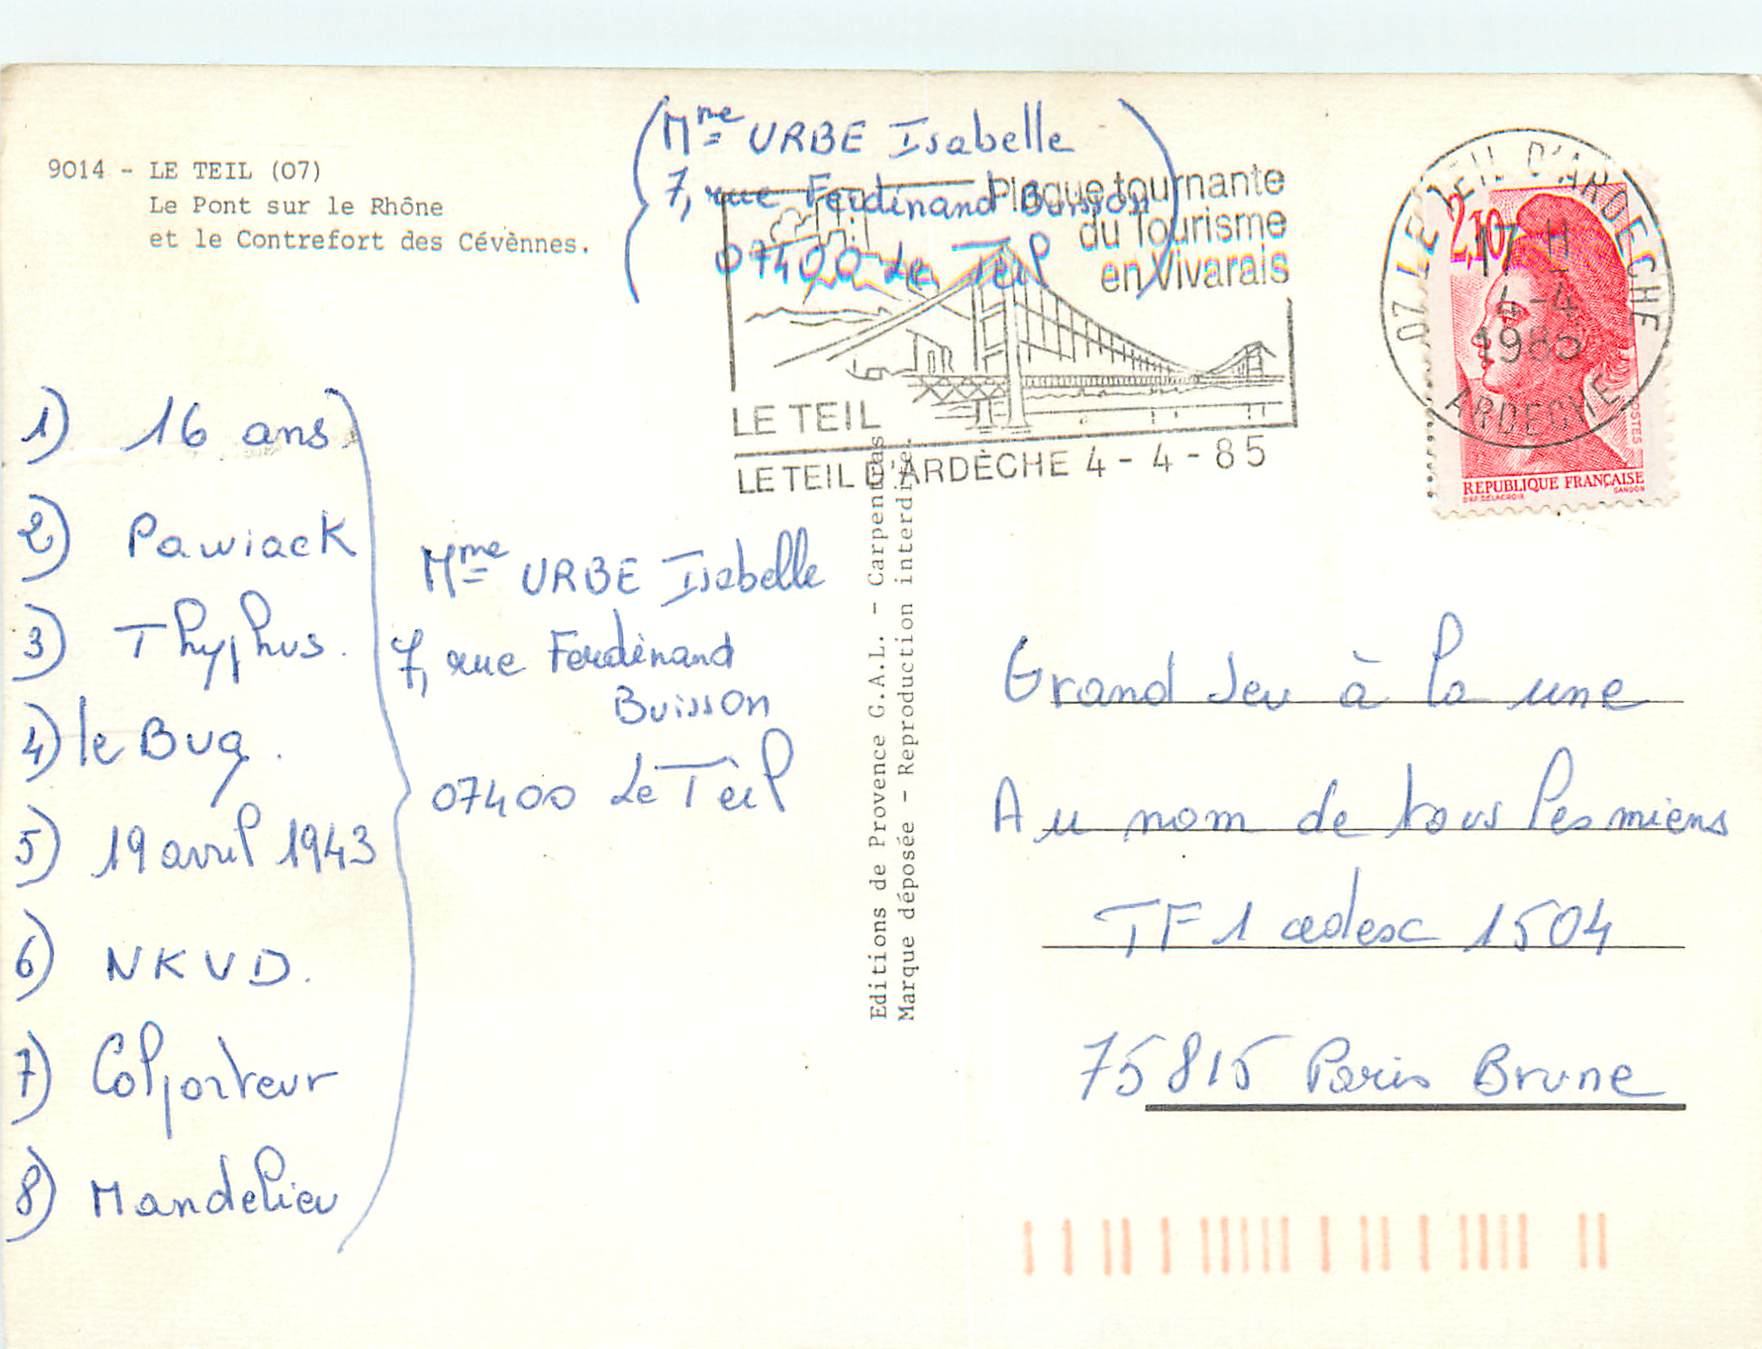 9014 - LE TEIL (07)
Le Pont sur le Rhône
et le Contrefort des Cévènnes.
Mme URBE Isabelle
7, rue Ferdinand Buisson
07400 Le Teil
Plaque tournante
du Tourisme
en Vivarais
LE TEIL
LE TEIL D'ARDÈCHE 4 - 4 - 85
07 LE TEIL D'ARDECHE
17 H
4-4
1985
ARDECHE
2,10
POSTES
REPUBLIQUE FRANÇAISE
DAP. DELACROIX GANDON
1) 16 ans
2) Pawiack
3) Thyphus.
4) le Bug.
5) 19 avril 1943
6) NKVD.
7) Colporteur
8) Mandelieu
Mme URBE Isabelle
7, rue Ferdinand
Buisson
07400 Le Teil
Editions de Provence G.A.L. - Carpentras
Marque déposée - Reproduction interdite.
Grand Jeu à la une
Au nom de tous les miens
TF1 cedesc 1504
75815 Paris Brune